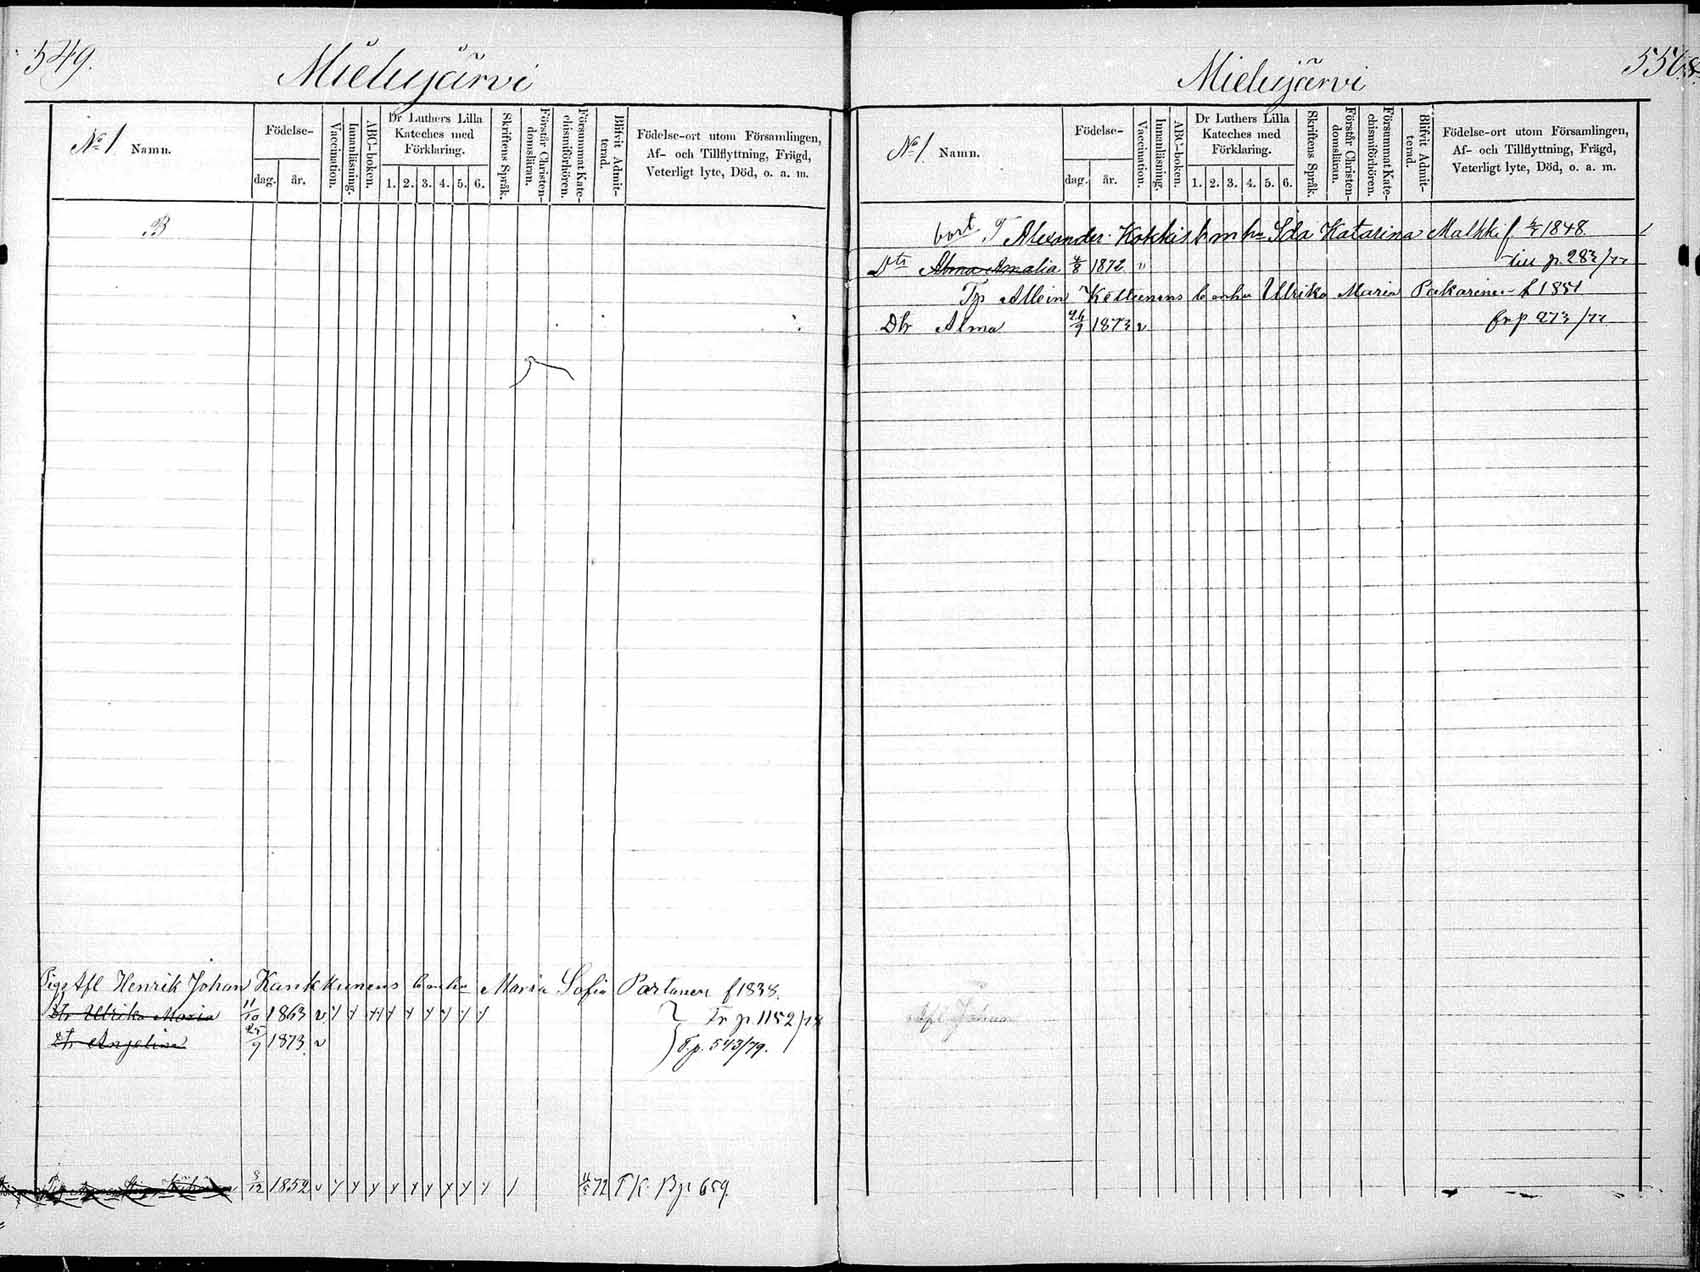 549.
Mielujärvi
No 1. Namn.
Födelse-
dag. år.
Vaccination.
Innanläsning.
ABC-boken.
Dr Luthers Lilla
Kateches med
Förklaring.
1. 2. 3. 4. 5. 6.
Skriftens Språk.
Förstår Christen-
domsläran.
Försummat Kate-
chismiförhören.
Blifvit Admit-
terad.
Födelse-ort utom Församlingen,
Af- och Tillflyttning, Frägd,
Veterligt lyte, Död, o. a. m.
B
Afl Henrik Johan Maria Sofia Partanen f 1838.
Dtr Ulrika Maria 11/10 1863 v Fr p. 1152/78
Dtr Angelina 25/9 1873 v T. p. 543/79.
3/12 1852 v 72 T K. B p 659
Mielujärvi
No 1. Namn.
Födelse-
dag. år.
Vaccination.
Innanläsning.
ABC-boken.
Dr Luthers Lilla
Kateches med
Förklaring.
1. 2. 3. 4. 5. 6.
Skriftens Språk.
Förstår Christen-
domsläran.
Försummat Kate-
chismiförhören.
Blifvit Admit-
terad.
Födelse-ort utom Församlingen,
Af- och Tillflyttning, Frägd,
Veterligt lyte, Död, o. a. m.
bort T Alexander Kokkis Ida Katarina f 1848.
Dtr Alma Amalia 4/8 1872 " till p. 283/77
Ulrika Maria Pakarinen f 1851
Dtr Alma 26/9 1873 v fr p 273/77
Afl Johan